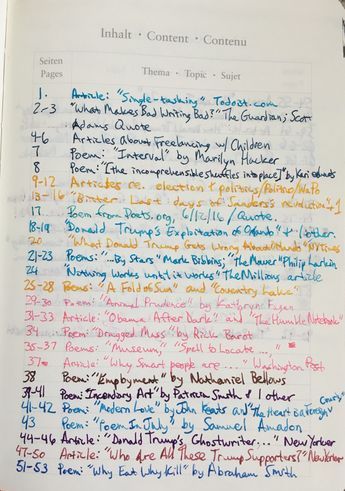 Inhalt · Content · Contenu
Seiten
Pages
Thema · Topic · Sujet
1. Article: "Single-tasking" Todoist.com
2-3 "What Makes Bad Writing Bad?" The Guardian; Scott
Adams Quote
4-6 Articles About Freelancing w/ Children
7 Poem: "Interval" by Marilyn Hacker
8 Poem: "[the incomprehensible shuffles into place]" by Kari
9-12 Articles re. election + politics/Politico/WaPo
13-16 "Bitter Last days of Sanders's revolution" + 1
17 Poem from Poets.org, 6/12/16/Quote.
18-19 "Donald Trump's Exploitation of Orlando" + 1 other.
20 "What Donald Trump Gets Wrong About Orlando" NYTimes
21-23 Poems: "-By Stars" Mark Bibbins; "The Mower" Philip Larkin
24 "Nothing works until it works" The Millions article
25-28 Poems: "A Fold of Sun" and "Coventry Lake"
29-30 Poem: "Annual Prudence" by Kathryn
31-33 Article: "Obama After Dark" and "The Humble Notebook"
34 Poem: "Dragged Mass" by Rick Barot
35-37 Poems: "Museum," "Spell to Locate ...,"
37 Article: "Why Smart people are ...." Washington Post
38 Poem: "Employment" by Nathaniel Bellows
39-41 Poem: Incendiary Art by Patricia Smith + 1 other
41-42 Poem: "Modern Love" by John Keats and "The Heart is a Foreign Country"
43 Poem: "Poem In July" by Samuel Amadon
44-46 Article: "Donald Trump's Ghostwriter..." New Yorker
47-50 Article: "Who Are All These Trump Supporters?" New Yorker
51-53 Poem: "Why Eat Why Kill" by Abraham Smith